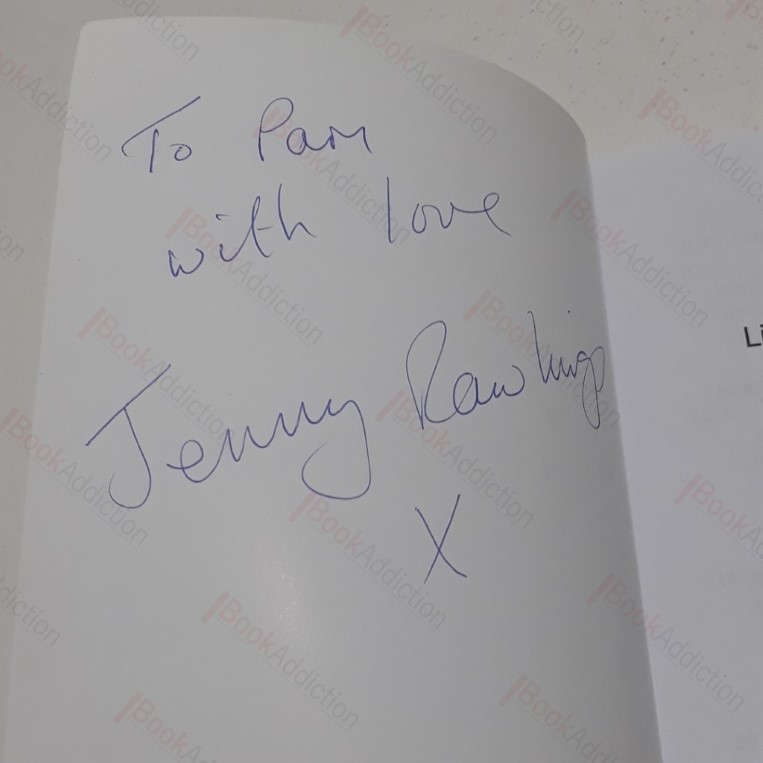 To Pam
with love
Jenny Rawlings
X
Li
BookAddiction